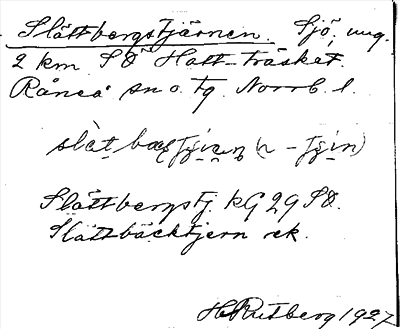 Slättbergstjärnen. Sjö, ung.
2 km SÖ Hatt-träsket.
Råneå sn o. tg. Norrb. l.
Slättbergstj. kG 29 SÖ.
Slättbäcktjern ek.
H Rutberg 1927